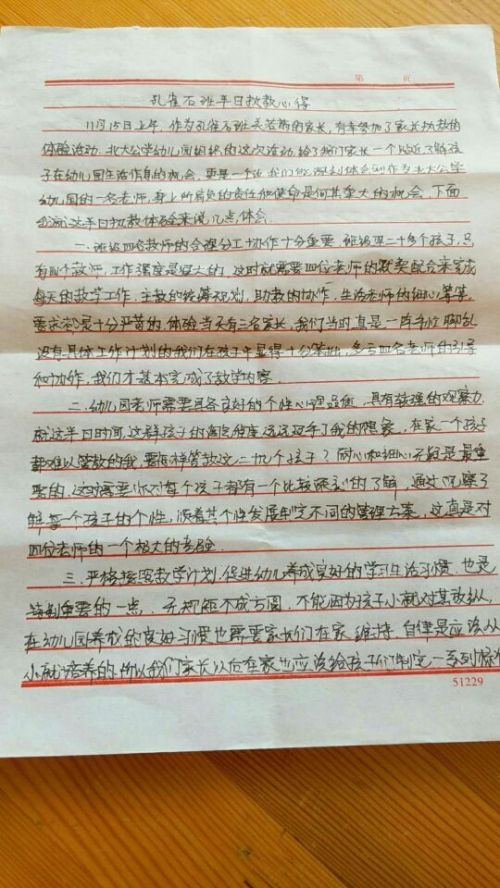 第 页
孔雀石班半日执教心得
11月15日上午,作为孔雀石班 的家长,有幸参加了家长执教的
体验活动。北大公学幼儿园组织的这次活动,给了我们家长一个贴近了解孩
子在幼儿园生活作息的机会,更是一个让我们能深刻体会到作为北大公学
幼儿园的一名老师,身上所肩负的责任和使命是何其重大的机会。下面
我就这半日执教体验来说几点体会。
一、班级四名教师的合理分工协作十分重要。班级里二十多个孩子,只
有四个教师,工作强度是很大的,这时就需要四位老师的默契配合来完成
每天的教学工作,主教的统筹规划,助教的协作,生活老师的细心等等,
要求都是十分严苛的。体验当天有三名家长,我们当时真是一阵手忙脚乱
没有具体工作计划的我们在孩子中显得十分笨拙,多亏四名老师的引导
和协作,我们才基本完成了教学内容。
二、幼儿园老师需要具备良好的个性心理品质,具有较强的观察力
就这半日时间,这群孩子的 程度远远超乎了我的想象,在家一个孩子
都难以管教的我,要怎样管教这二十九个孩子?耐心和细心无疑是最重
要的,这时需要你对每个孩子都有一个比较深刻的了解,通过观察了
解每一个孩子的个性,顺着其个性发展制定不同的管理方案,这真是对
四位老师的一个极大的考验。
三、严格按照教学计划,促进幼儿养成良好的学习生活习惯,也是
特别重要的一点。无规矩不成方圆,不能因为孩子小就对其放纵,
在幼儿园养成的良好习惯也需要家长们在家维持,自律是应该从
小就培养的,所以我们家长以后在家也应该给孩子们制定一系列
51229